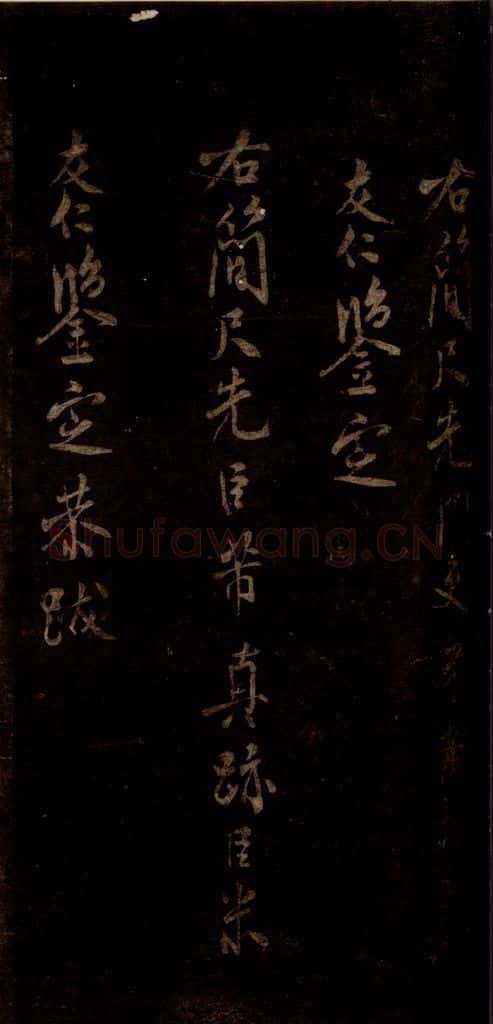 右簡尺先
友仁鑒定
右簡尺先臣芾真跡臣米
友仁鑒定恭跋
shufawang.CN